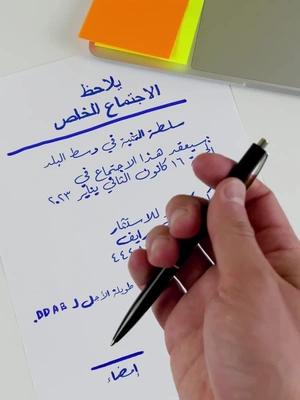 يلاحظ
الاجتماع الخاص
سلطة التنمية في وسط البلد
سيعقد هذا الاجتماع في
١٦ كانون الثاني يناير ٢٠٢٣
للاستثمار
رايف
٤٤٤
طويلة الأجل ل DDAB.
إمضاء